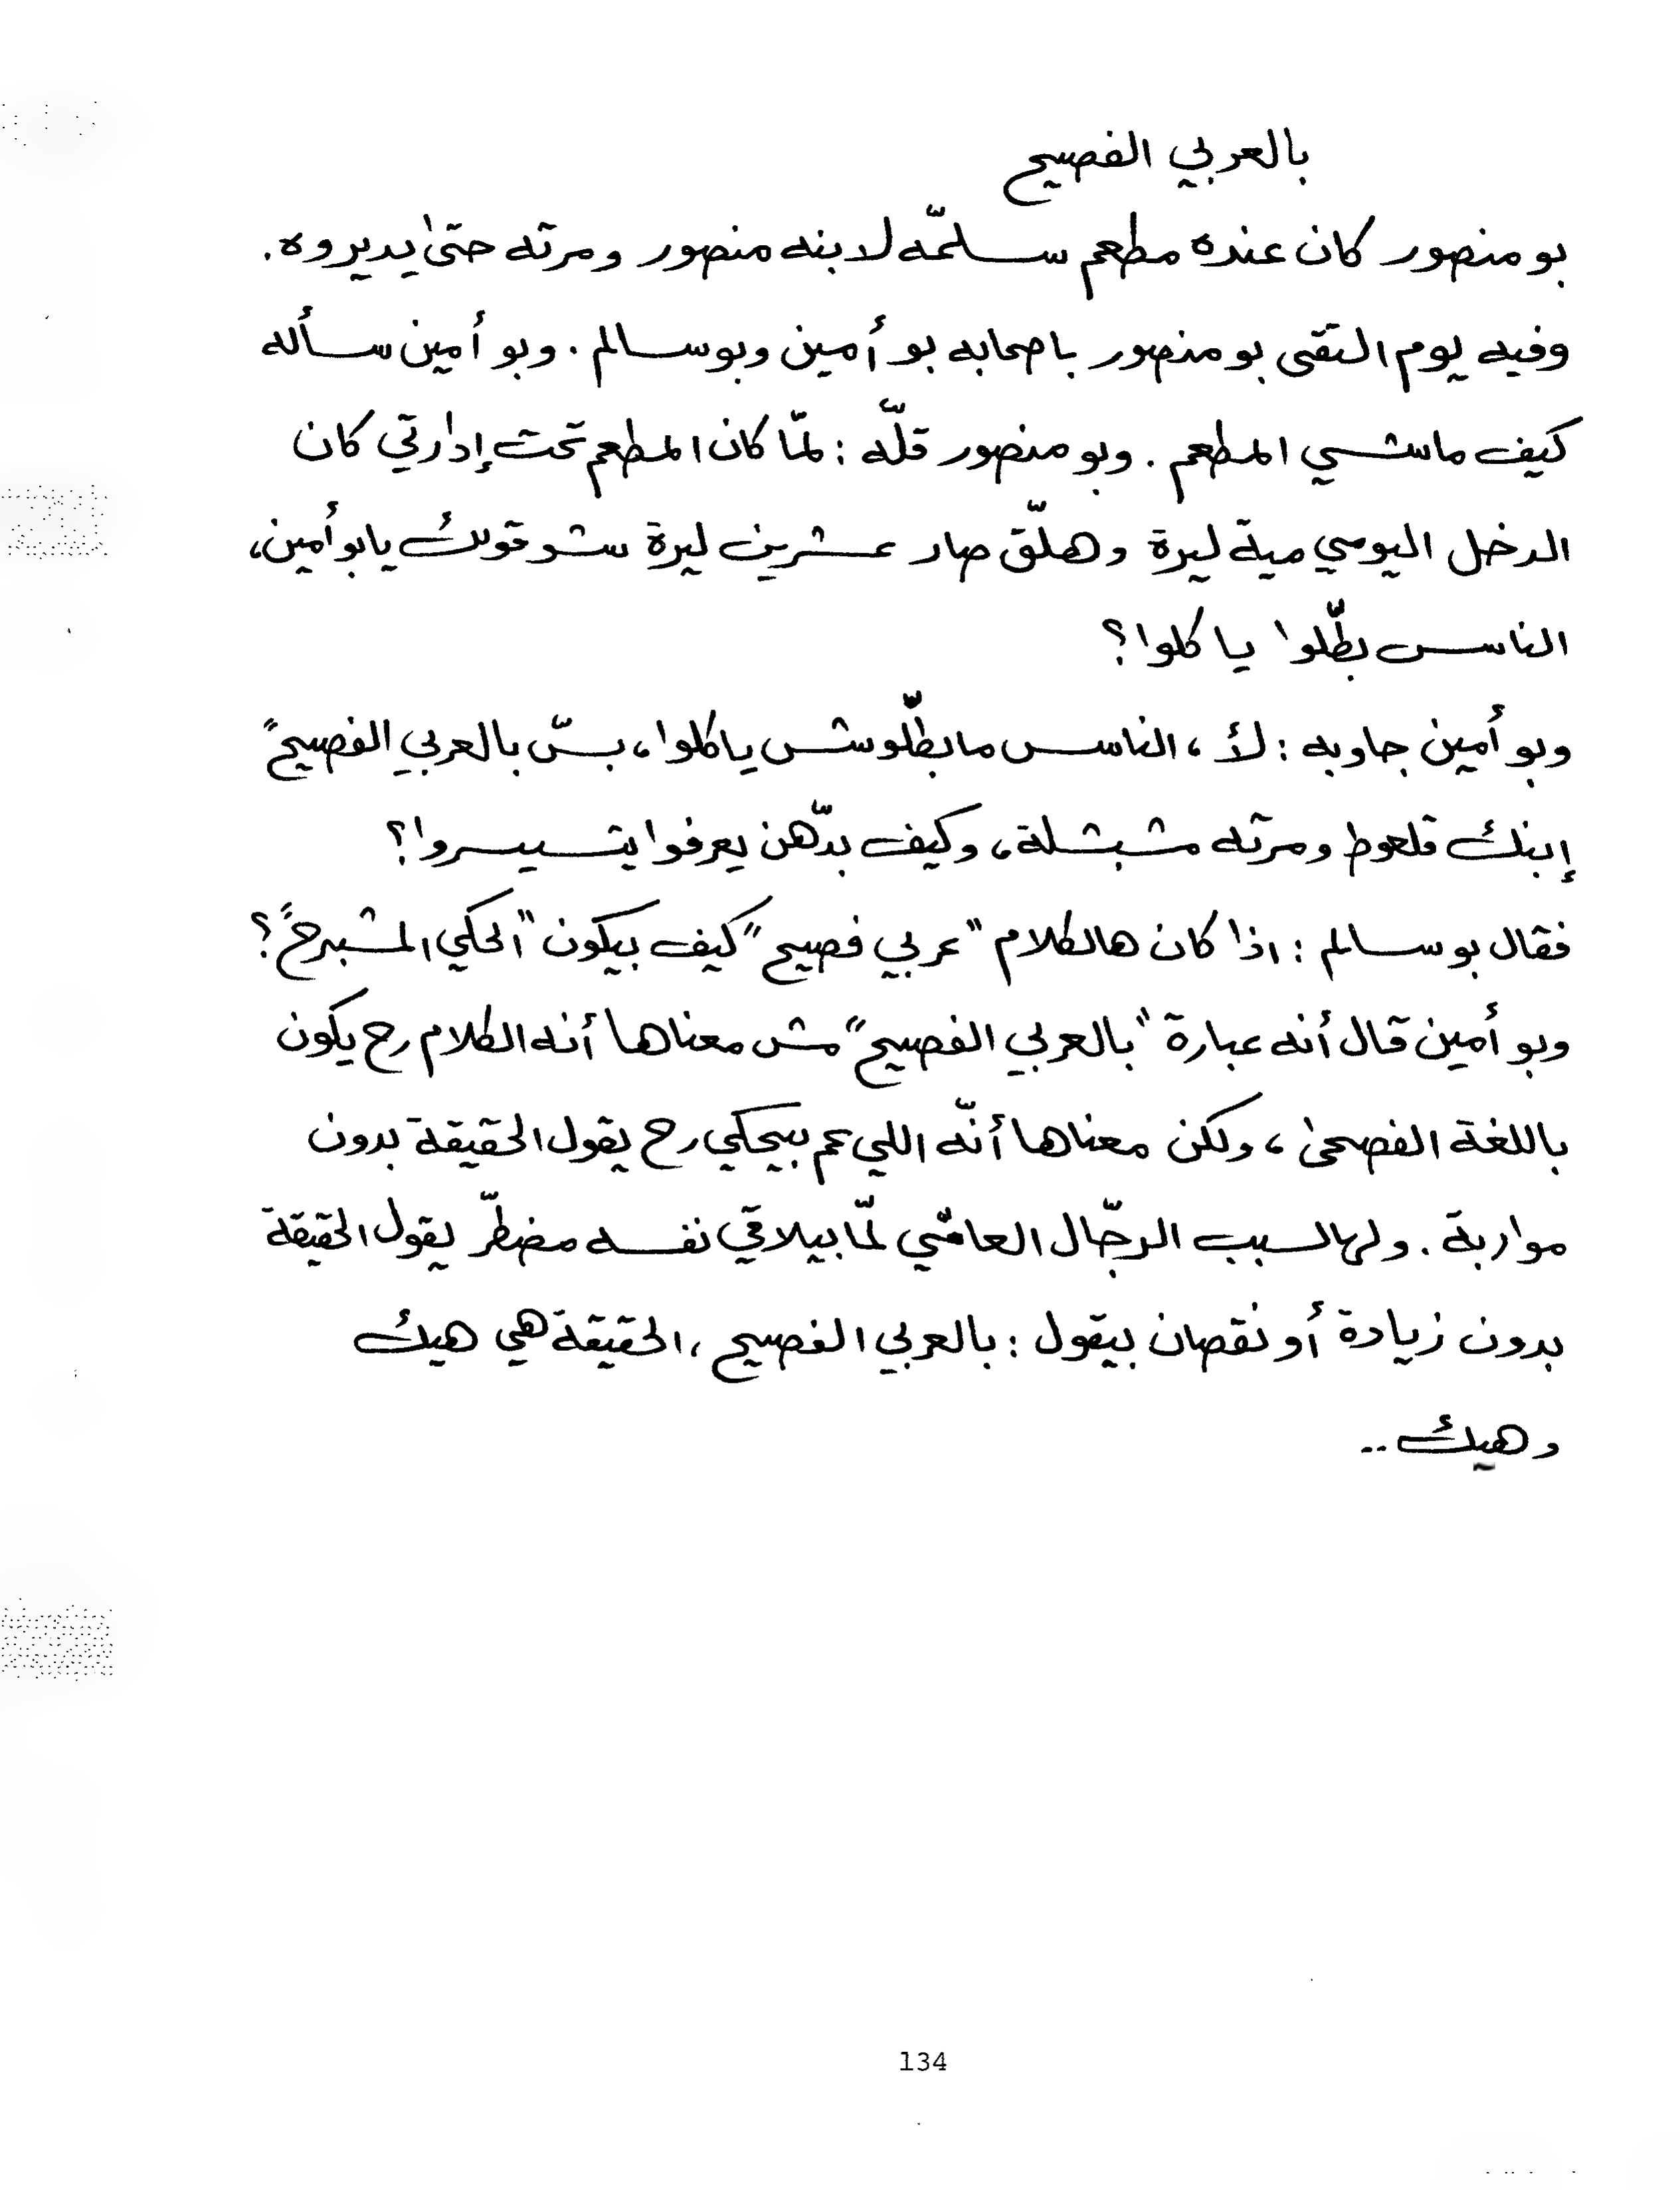 بالعربي الفصيح
بو منصور كان عنده مطعم سلّمه لابنه منصور ومرته حتىٰ يديروه.
وفيه يوم التقى بو منصور باصحابه بو أمين وبو سالم. وبو أمين سأله
كيف ماشي المطعم. وبو منصور قلّه: لمّا كان المطعم تحت إدارتي كان
الدخل اليومي مية ليرة وهلّق صار عشرين ليرة شو قولك يا بو أمين،
الناس بطّلوا ياكلوا؟
وبو أمين جاوبه: لأ، الناس ما بطّلوش ياكلوا، بسّ بالعربي الفصيح"
إبنك قلعوط ومرته مشبشلة، وكيف بدّهن يعرفوا يتسيسروا؟
فقال بو سالم: اذا كان هالكلام "عربي فصيح" كيف بيكون "الحكي المشبرح"؟
وبو أمين قال أنه عبارة "بالعربي الفصيح" مش معناها أنه الكلام رح يكون
باللغة الفصحىٰ، ولكن معناها أنّه اللي عم بيحكي رح يقول الحقيقة بدون
مواربة. ولهالسبب الرجّال العامّي لمّا بيلاقي نفسه مضطرّ يقول الحقيقة
بدون زيادة أو نقصان بيقول: بالعربي الفصيح، الحقيقة هي هيك
وهيك..
134